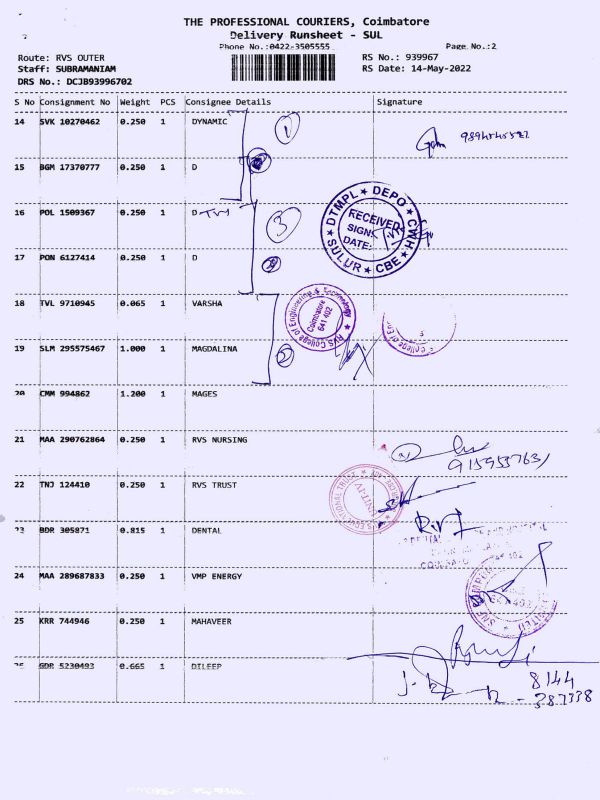 THE PROFESSIONAL COURIERS, Coimbatore
Delivery Runsheet - SUL
Phone No.:0422-3505555 Page No.:2
Route: RVS OUTER RS No.: 939967
Staff: SUBRAMANIAM RS Date: 14-May-2022
DRS No.: DCJB93996702
S No Consignment No Weight PCS Consignee Details Signature
14 SVK 10270462 0.250 1 DYNAMIC 1
15 BGM 17370777 0.250 1 D
16 POL 1509367 0.250 1 D TVS 3
17 PON 6127414 0.250 1 D
DTMPL ★ DEPO ★ CWH ★ CBE ★ SULUR ★
RECEIVED
SIGN:
DATE:
18 TVL 9710945 0.065 1 VARSHA
RVS College of Engineering & Technology ★
Coimbatore
641 402
19 SLM 295575467 1.000 1 MAGDALINA 2
20 CMM 994862 1.200 1 MAGES
21 MAA 290762864 0.250 1 RVS NURSING
22 TNJ 124410 0.250 1 RVS TRUST
23 BDR 305871 0.815 1 DENTAL
24 MAA 289687833 0.250 1 VMP ENERGY
25 KRR 744946 0.250 1 MAHAVEER
26 GDR 5230493 0.665 1 DILEEP
8144
- 387338